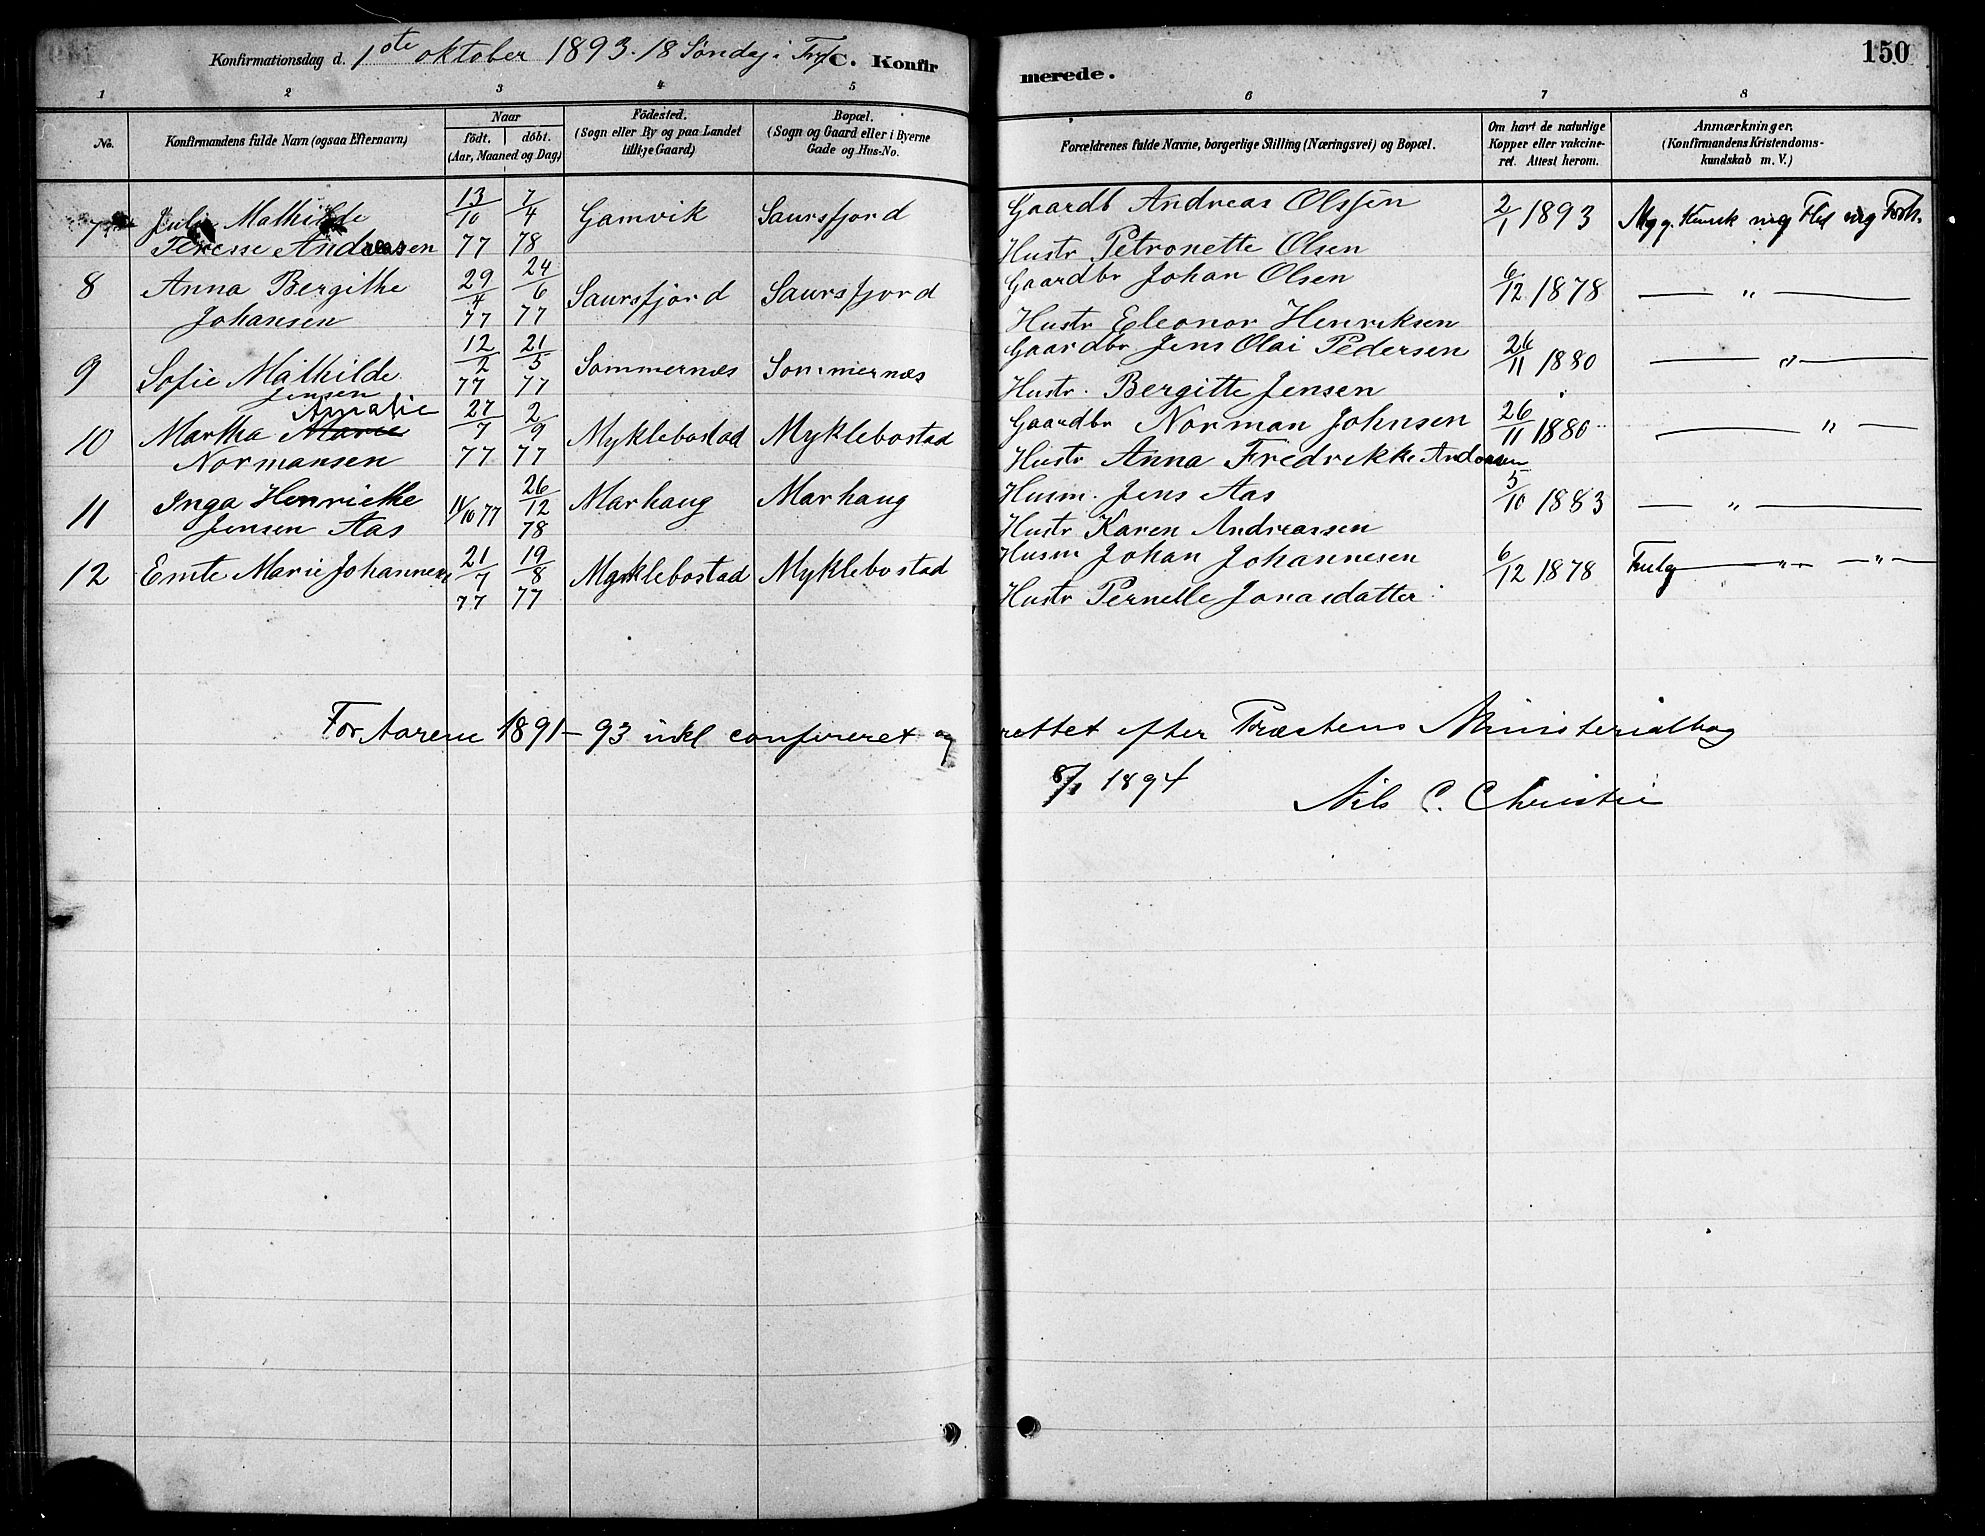 Konfirmationsdag d. 1ote oktober 1893. 18 Søndag i C. Konfirmerede. 150
1 2 3 4 5 6 7 8
No. Konfirmandens fulde Navn (ogsaa Efternavn) Naar födt. döbt. (Aar, Maaned og Dag) Födested. (Sogn eller By og paa Landet tillige Gaard) Bopæl. (Sogn og Gaard eller i Byerne Gade og Hus-No. Forældrenes fulde Navne, borgerlige Stilling (Næringsvei) og Bopæl. Om havt de naturlige Kopper eller vakcineret. Attest herom. Anmærkninger. (Konfirmandens Kristendomskundskab m. V.)
7 Mathilde 13/10 7/4 Gamvik Saursfjord Gaardb Andreas Olssen 2/1 1893 Mg g. Kundsk mg Flid mg Forh.
Terese Andreasen 77 78 Hustr Petronette Olsen
8 Anna Bergithe 29/4 24/6 Saursfjord Saursfjord Gaardbr Johan Olsen 6/12 1878 — " —
Johansen 77 77 Hustr Eleonor Henriksen
9 Sofie Mathilde 12/2 21/5 Sommernæs Sommernæs Gaardbr. Jens Olai Pedersen 26/11 1880 — " —
Jensen 77 77 Hustr. Bergitte Jensen
Amalie
10 Martha Marie 27/7 2/9 Myklebostad Myklebostad Gaardbr Norman Johnsen 26/11 1880 — " —
Normansen 77 77 Hustr Anna Fredrikke Andersen
11 Inga Henriette 11/10 77 26/12 Marhaug Marhaug Husm. Jens Aas 5/10 1883 — " —
Jensen Aas 78 Hustr Karen Andreassen
12 Emte Marie Johannesen 21/7 19/8 Myklebostad Myklebostad Husm Johan Johannesen 6/12 1878 — " — — " —
77 77 Hustr Pernelle Jonasdatter
For Aarene 1891 – 93 inkl confereret og rettet efter Præstens Ministerialbog
8/1 1894 Nils C. Christie